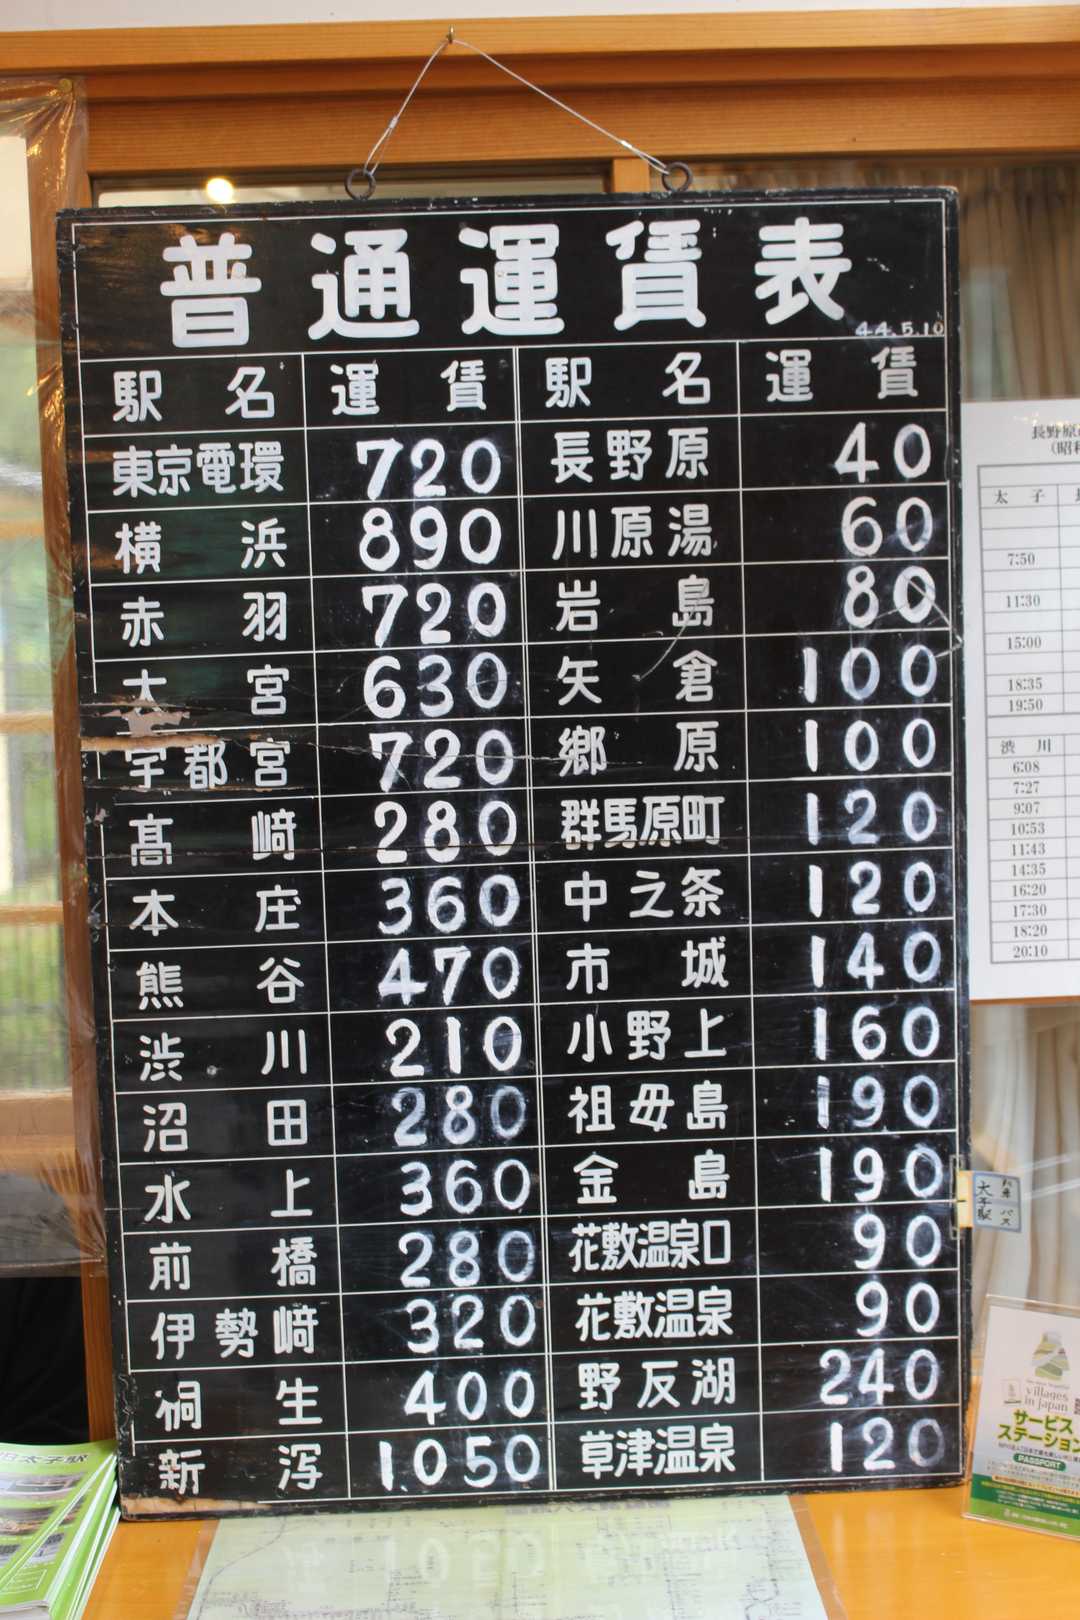 普通運賃表
44.5.10
駅名 運賃 駅名 運賃
東京電環 720 長野原 40
横浜 890 川原湯 60
赤羽 720 岩島 80
大宮 630 矢倉 100
宇都宮 720 郷原 100
髙﨑 280 群馬原町 120
本庄 360 中之条 120
熊谷 470 市城 140
渋川 210 小野上 160
沼田 280 祖母島 190
水上 360 金島 190
前橋 280 花敷温泉口 90
伊勢﨑 320 花敷温泉 90
桐生 400 野反湖 240
新潟 1050 草津温泉 120
長野原
太子
7:50
11:30
15:00
18:35
19:50
渋川
6:08
7:27
9:07
10:53
11:43
14:35
16:20
17:30
18:20
20:10
太子駅 バス
villages
in japan
サービス
ステーション
PASSPORT
旧太子駅